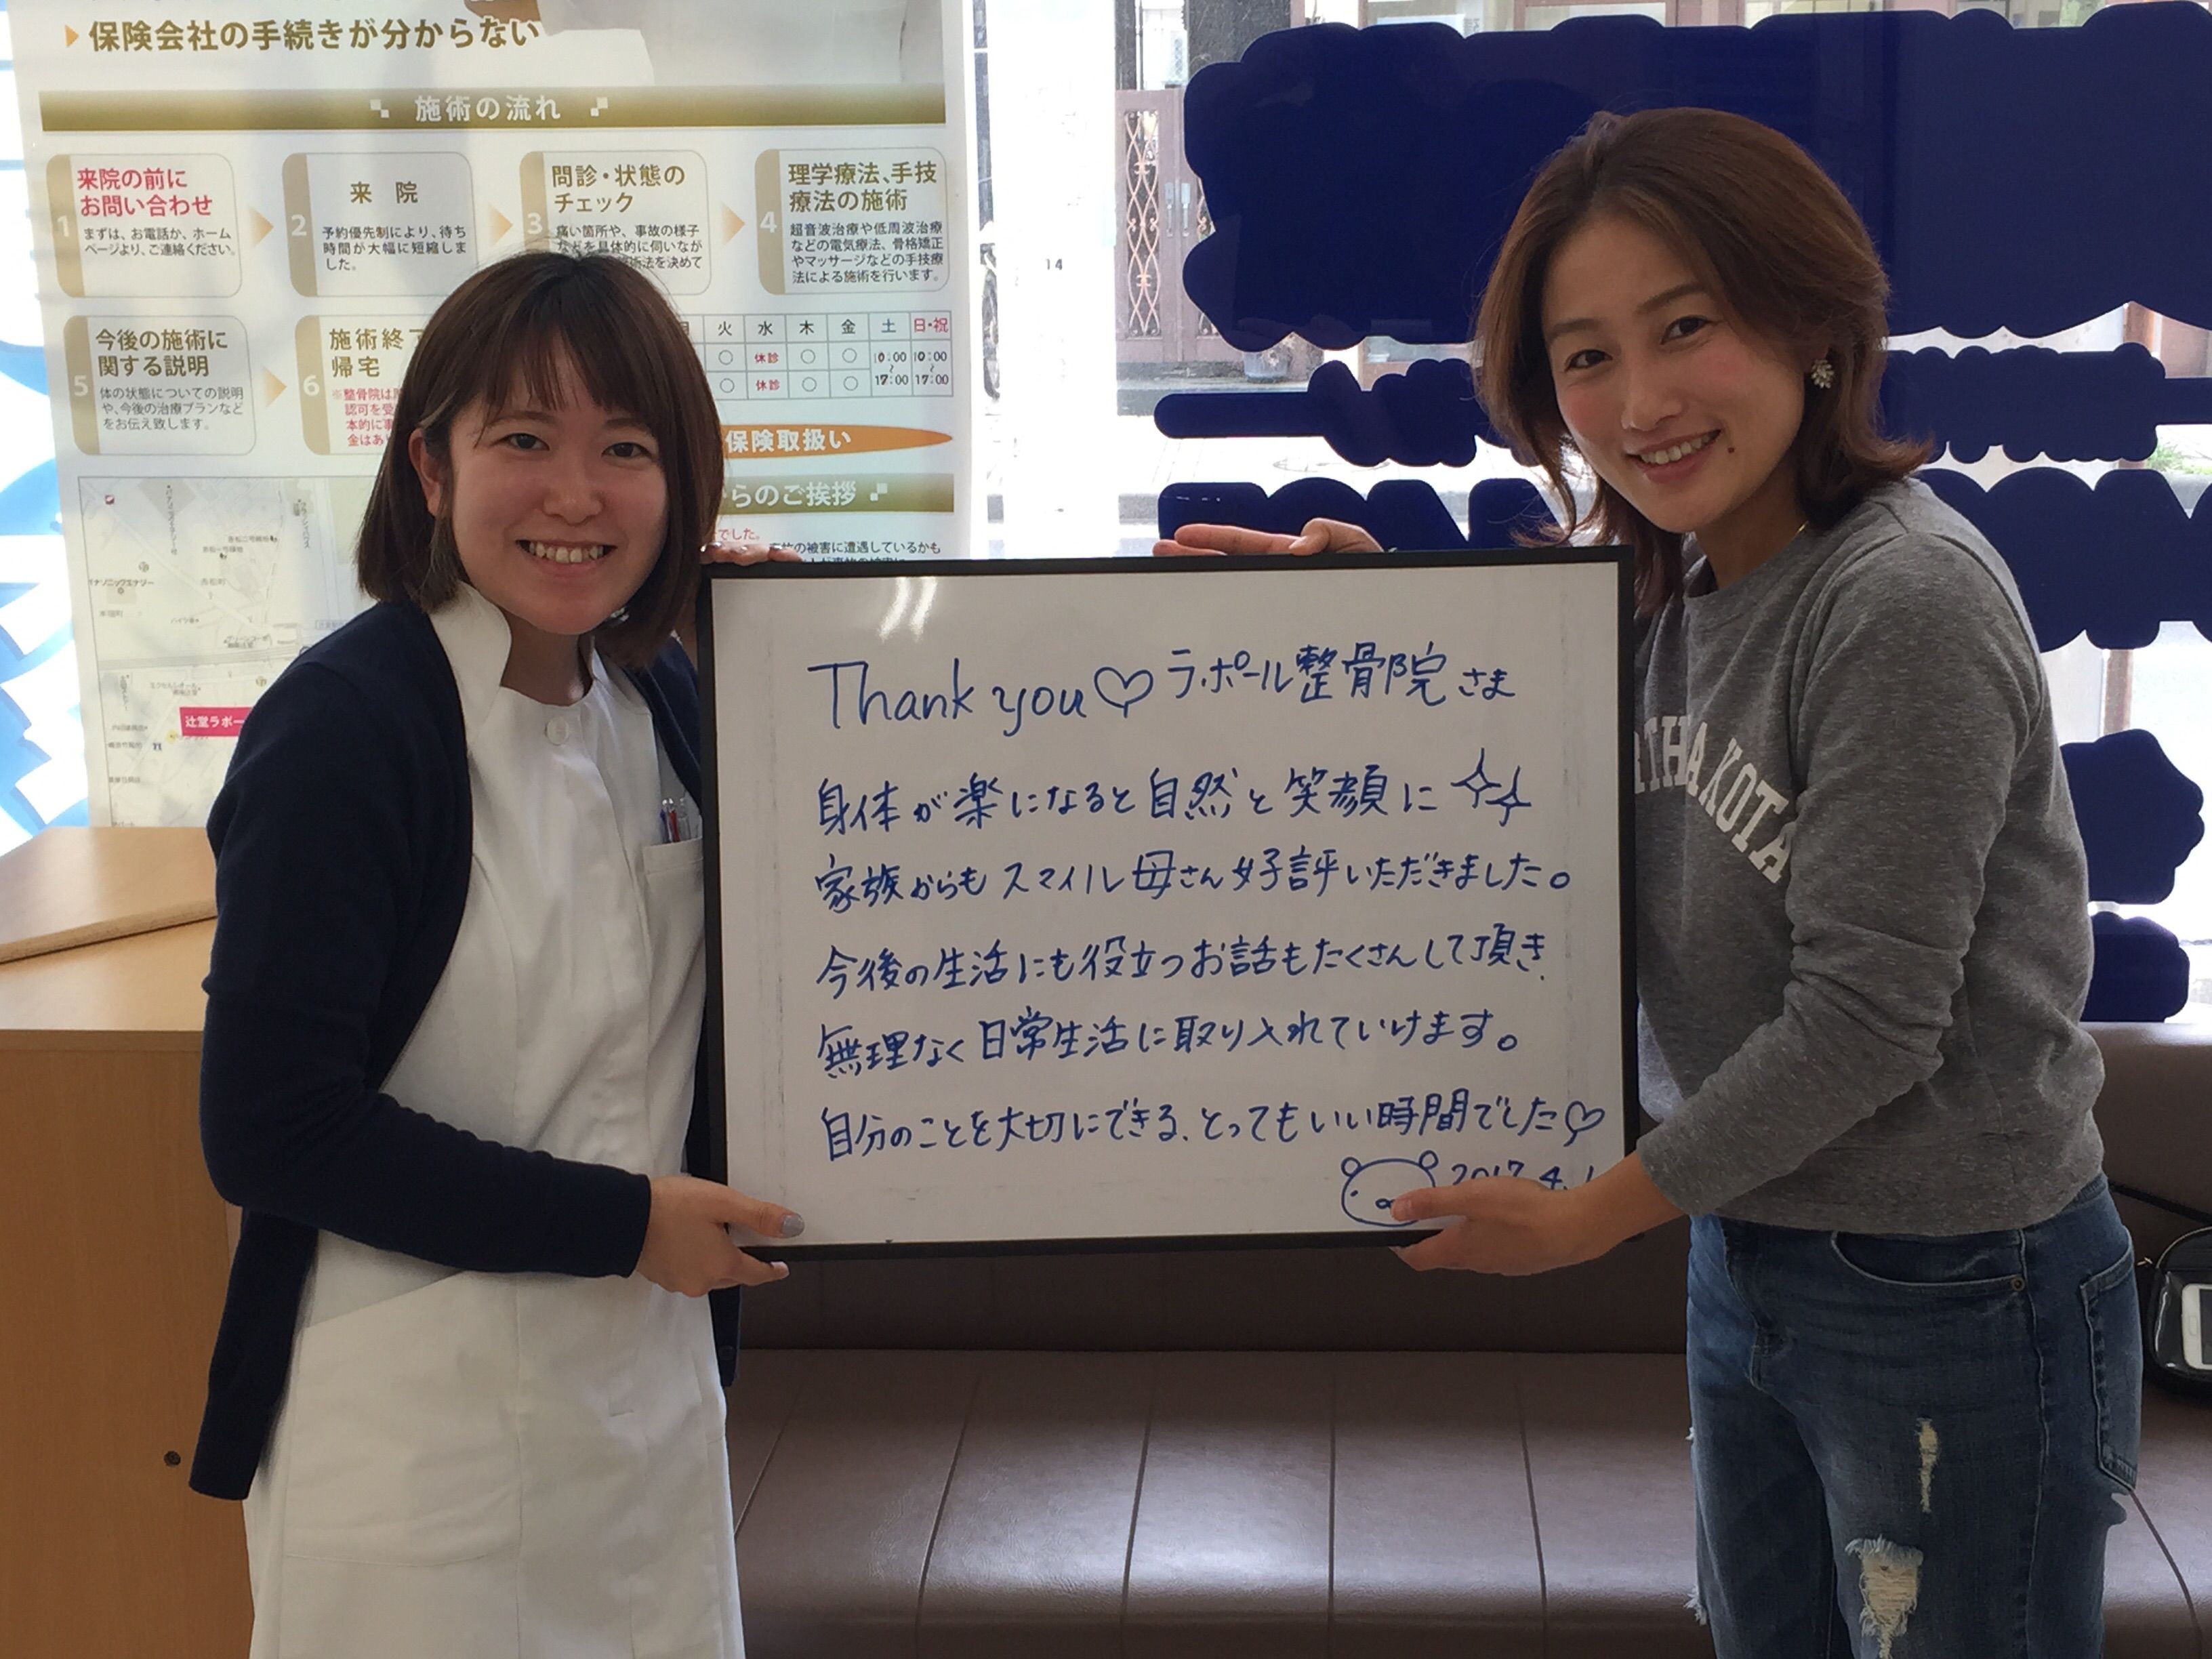 保険会社の手続きが分からない
施術の流れ
1
来院の前に
お問い合わせ
まずは、お電話か、ホーム
ページより、ご連絡ください。
2
来 院
予約優先制により、待ち
時間が大幅に短縮しま
した。
3
問診・状態の
チェック
痛い箇所や、事故の様子
などを具体的に伺いなが
術法を決めて
4
理学療法、手技
療法の施術
超音波治療や低周波治療
などの電気療法、骨格矯正
やマッサージなどの手技療
法による施術を行います。
5
今後の施術に
関する説明
体の状態についての説明
や、今後の治療プランなど
をお伝え致します。
6
施術終了
帰宅
※整骨院は
認可を受
本的に
金はあ
火 水 木 金 土 日・祝
○ 休診 ○ ○ 10:00 10:00
○ 休診 ○ ○ 17:00 17:00
保険取扱い
らのご挨拶
でした。
の被害に遭遇しているかも
辻堂ラポー
14
Thank you♡ ラポール整骨院さま
身体が楽になると自然と笑顔に
家族からもスマイル母さん好評いただきました。
今後の生活にも役立つお話もたくさんして頂き、
無理なく日常生活に取り入れていけます。
自分のことを大切にできる、とってもいい時間でした♡
2017.4.1
RTH DAKOTA